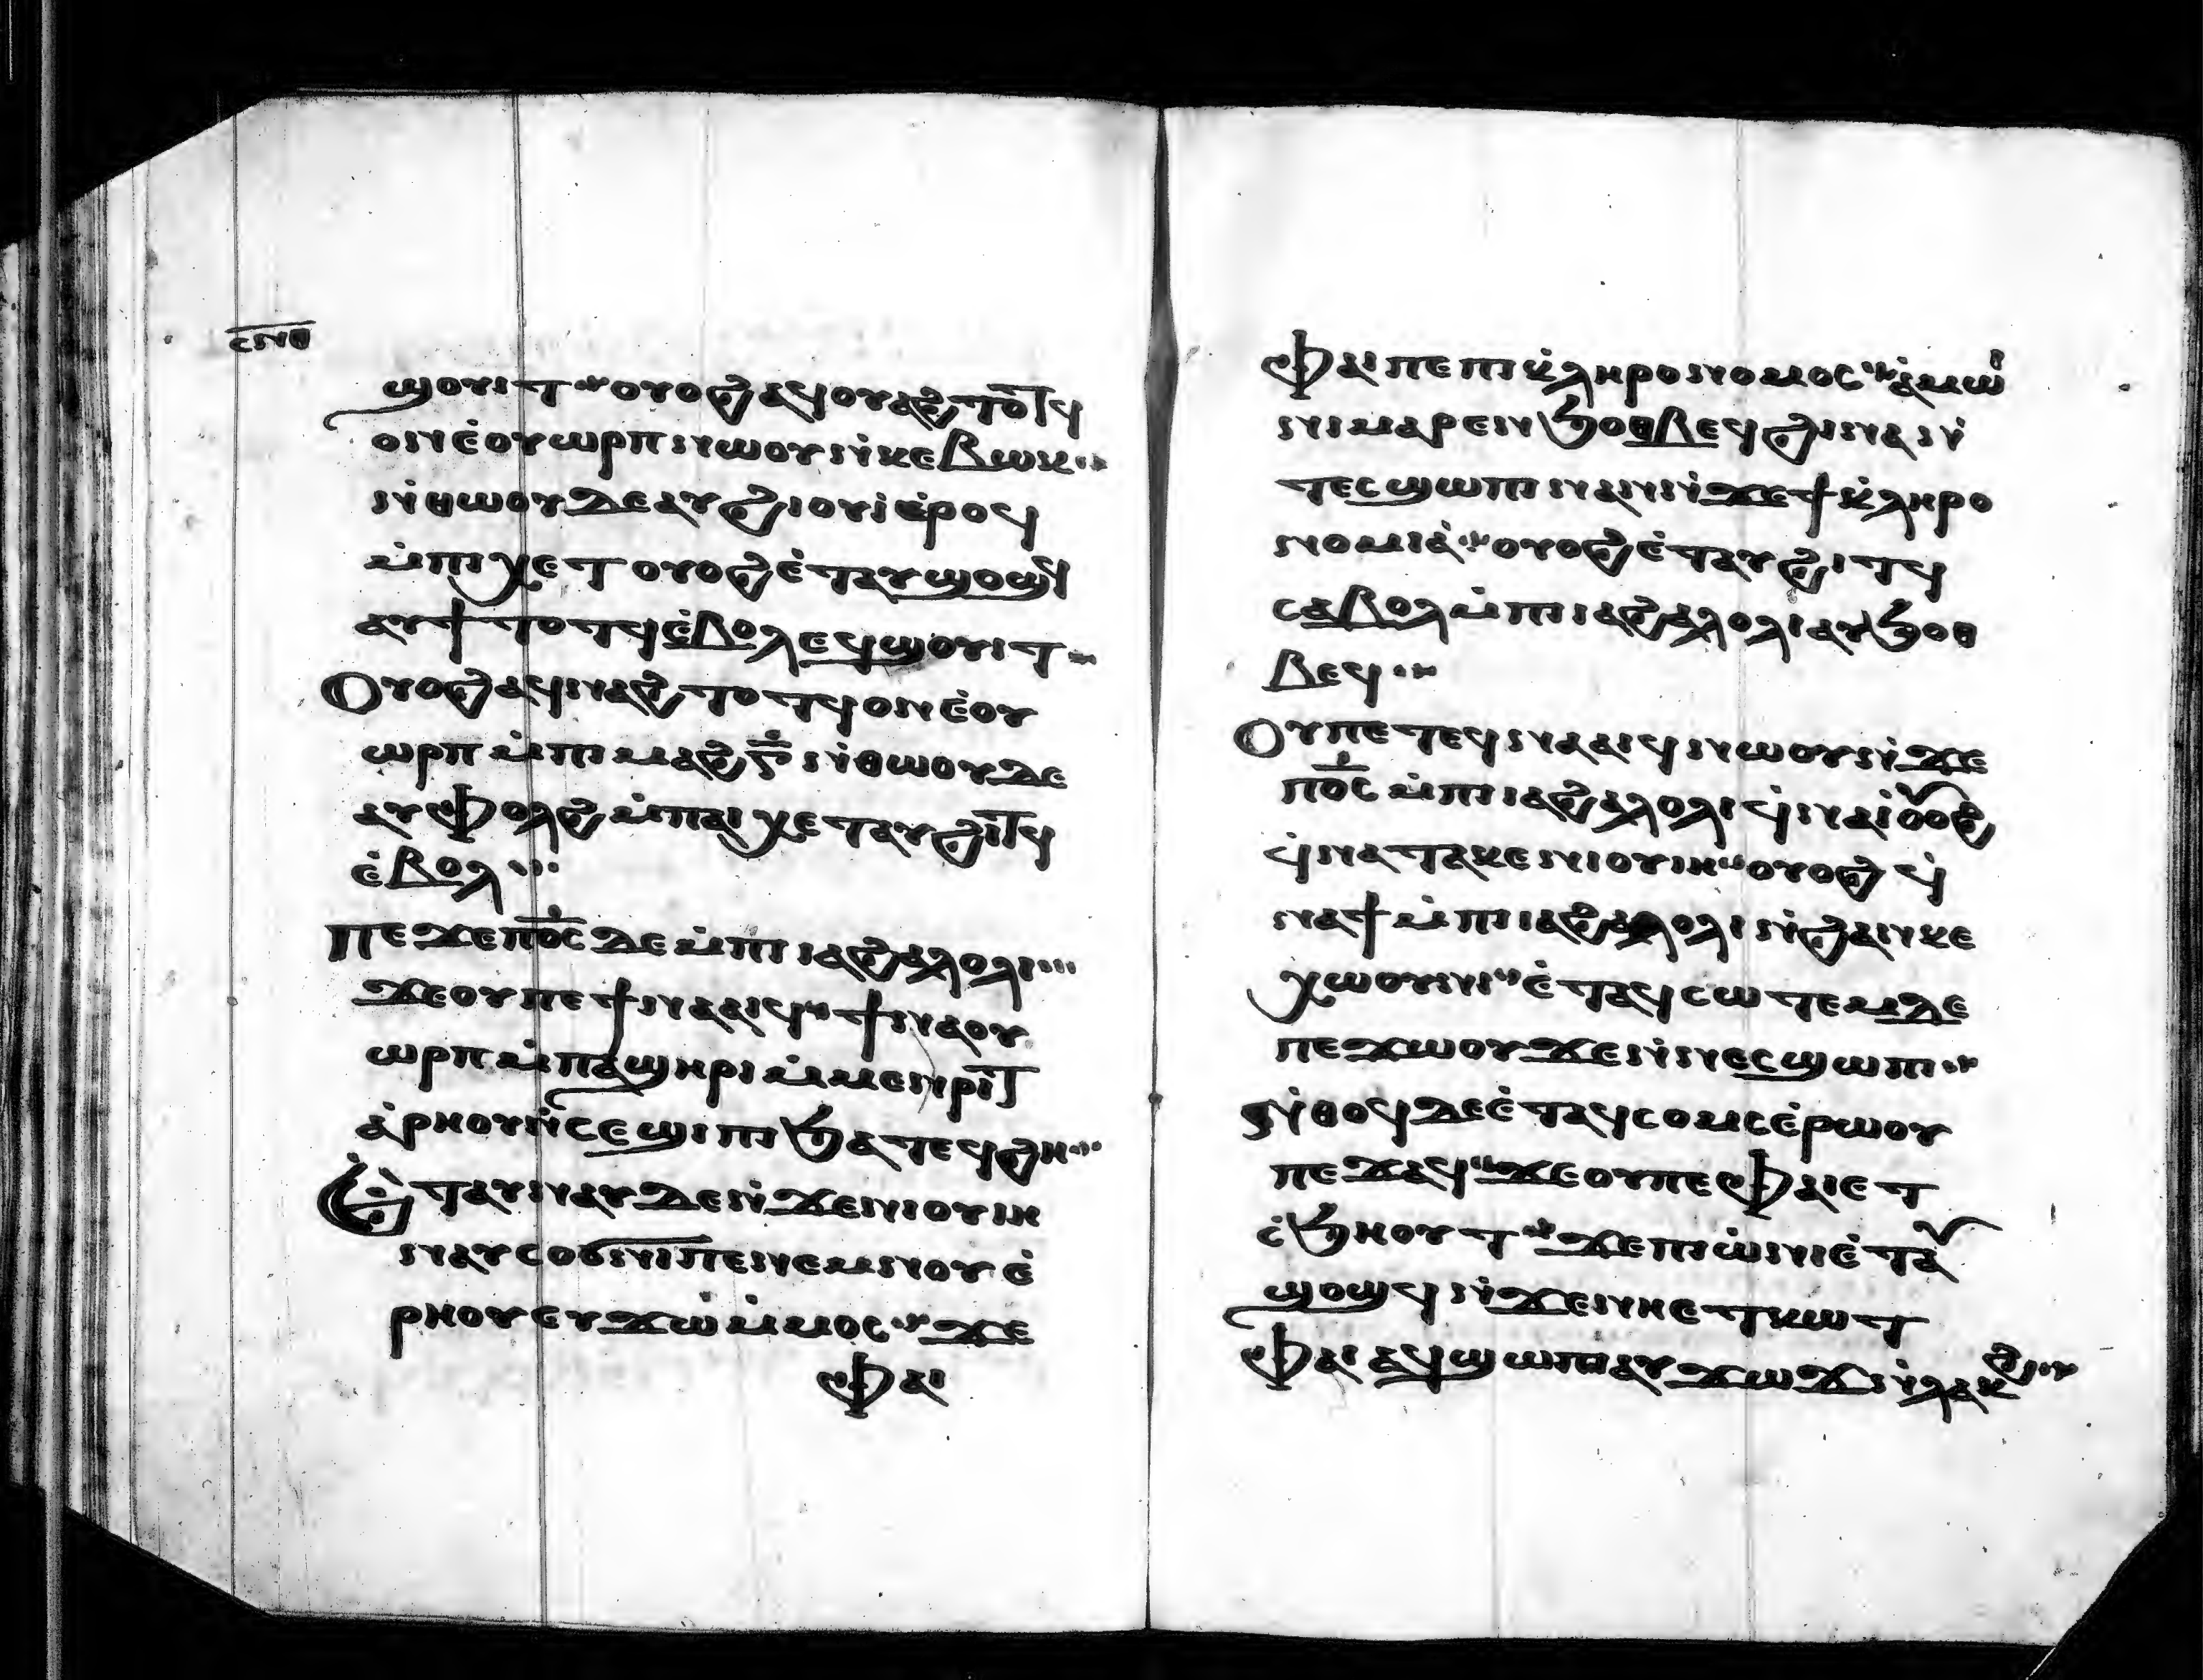 ⲥⲛⲑ
ϣⲟⲩⲓⲧ ⲟⲩⲟϩ ⲁϥⲟⲩⲁϩⲧⲟⲧϥ
ⲟⲛ ⲉ̀ⲟⲩⲱⲣⲡ ⲛⲱⲟⲩ ⲛ̀ⲕⲉⲃⲱⲕ
ⲛ̀ⲑⲱⲟⲩ ⲇⲉ ⲁⲩϩⲓⲟⲩⲓ̀ ⲉ̀ⲣⲟϥ
ⲙ̀ⲡⲓⲭⲉⲧ ⲟⲩⲟϩ ⲉ̀ⲧⲁⲩϣⲟϣϥ
ⲁⲩϯ ⲧⲟⲧϥ ⲉ̀ⲃⲟⲗ ⲉϥϣⲟⲩⲓⲧ
Ⲟⲩⲟϩ ⲁϥⲛⲁϩⲧⲟⲧϥ ⲟⲛ ⲉ̀ⲟⲩ
ⲱⲣⲡ ⲙ̀ⲡⲓⲙⲁϩⲅ̅ ⲛ̀ⲑⲱⲟⲩ ⲇⲉ
ⲁⲩⲫⲟⲗϩ ⲙ̀ⲡⲁⲓⲭⲉⲧ ⲁⲩϩⲓⲧϥ
ⲉ̀ⲃⲟⲗ
Ⲡⲉϫⲉ ⲡⲟ̅ⲥ̅ ⲇⲉ ⲙ̀ⲡⲓⲓⲁϩⲁⲗⲟⲗⲓ
ϫⲉ ⲟⲩ ⲡⲉϯⲛⲁⲁⲓϥ ϯⲛⲁⲟⲩ
ⲱⲣⲡ ⲙ̀ⲡⲁϣⲏⲣⲓ ⲙ̀ⲙⲉⲛⲣⲓⲧ
ⲁ̀ⲣⲏⲟⲩ ⲛ̀ⲥⲉϣⲓⲡⲓ ϧⲁⲧⲉϥϩⲏ
Ⲉ̀ⲧⲁⲩⲛⲁⲩ ⲇⲉ ⲛ̀ϫⲉ ⲛⲓⲟⲩⲓⲏ
ⲛⲁⲩⲥⲟϭⲛⲓ ⲡⲉ ⲛⲉⲙ ⲛⲟⲩⲉ̀
ⲣⲏⲟⲩ ⲉⲩϫⲱ ⲙ̀ⲙⲟⲥ ϫⲉ
ⲫⲁⲓ
Ⲫⲁⲓ ⲡⲉ ⲡⲓⲕ̀ⲗⲏⲣⲟⲛⲟⲙⲟⲥ ⲁ̀ⲙⲱⲓ
ⲛⲓ ⲙⲁⲣⲉⲛϧⲟⲑⲃⲉϥ ϩⲓⲛⲁ ⲛ̀
ⲧⲉⲥϣⲱⲡⲓ ⲛⲁⲛ ⲛ̀ϫⲉ ϯⲕ̀ⲗⲏⲣⲟ
ⲛⲟⲙⲓⲁ̀ ⲟⲩⲟϩ ⲉ̀ⲧⲁⲩϩⲓⲧϥ
ⲥⲁⲃⲟⲗ ⲙ̀ⲡⲓⲓⲁϩⲁⲗⲟⲗⲓ ⲁⲩϧⲟⲑ
ⲃⲉϥ
Ⲟⲩ ⲡⲉⲧⲉϥⲛⲁⲁⲓϥ ⲛⲱⲟⲩ ⲛ̀ϫⲉ
ⲡⲟ̅ⲥ̅ ⲙ̀ⲡⲓⲓⲁϩⲁⲗⲟⲗⲓ ϥ̀ⲛⲁⲓ̀ ⲟⲩⲟϩ
ϥ̀ⲛⲁⲧⲁⲕⲉ ⲛⲓⲟⲩⲓⲏ ⲟⲩⲟϩ ϥ̀
ⲛⲁϯ ⲙ̀ⲡⲓⲓⲁϩⲁⲗⲟⲗⲓ ⲛ̀ϩⲁⲛⲕⲉ
ⲭⲱⲟⲩⲛⲓ ⲉ̀ⲧⲁϥⲥⲱⲧⲉⲙ ⲇⲉ
ⲡⲉϫⲱⲟⲩ ϫⲉ ⲛ̀ⲛⲉⲥϣⲱⲡⲓ
ⲛ̀ⲑⲟϥ ⲇⲉ ⲉ̀ⲧⲁϥⲥⲟⲙⲥ ⲉ̀ⲣⲱⲟⲩ
ⲡⲉϫⲁϥ ϫⲉ ⲟⲩ ⲡⲉ ⲫⲁⲓ ⲉⲧ
ⲥ̀ϧⲏⲟⲩⲧ ϫⲉ ⲡⲓⲱ̀ⲛⲓ ⲉ̀ⲧⲁⲩ
ϣⲟϣϥ ⲛ̀ϫⲉ ⲛⲏⲉⲧⲕⲱⲧ
ⲫⲁⲓ ⲁϥϣⲱⲡⲓ ⲁⲩϫⲱϫ ⲛ̀ⲗⲁⲕϩ